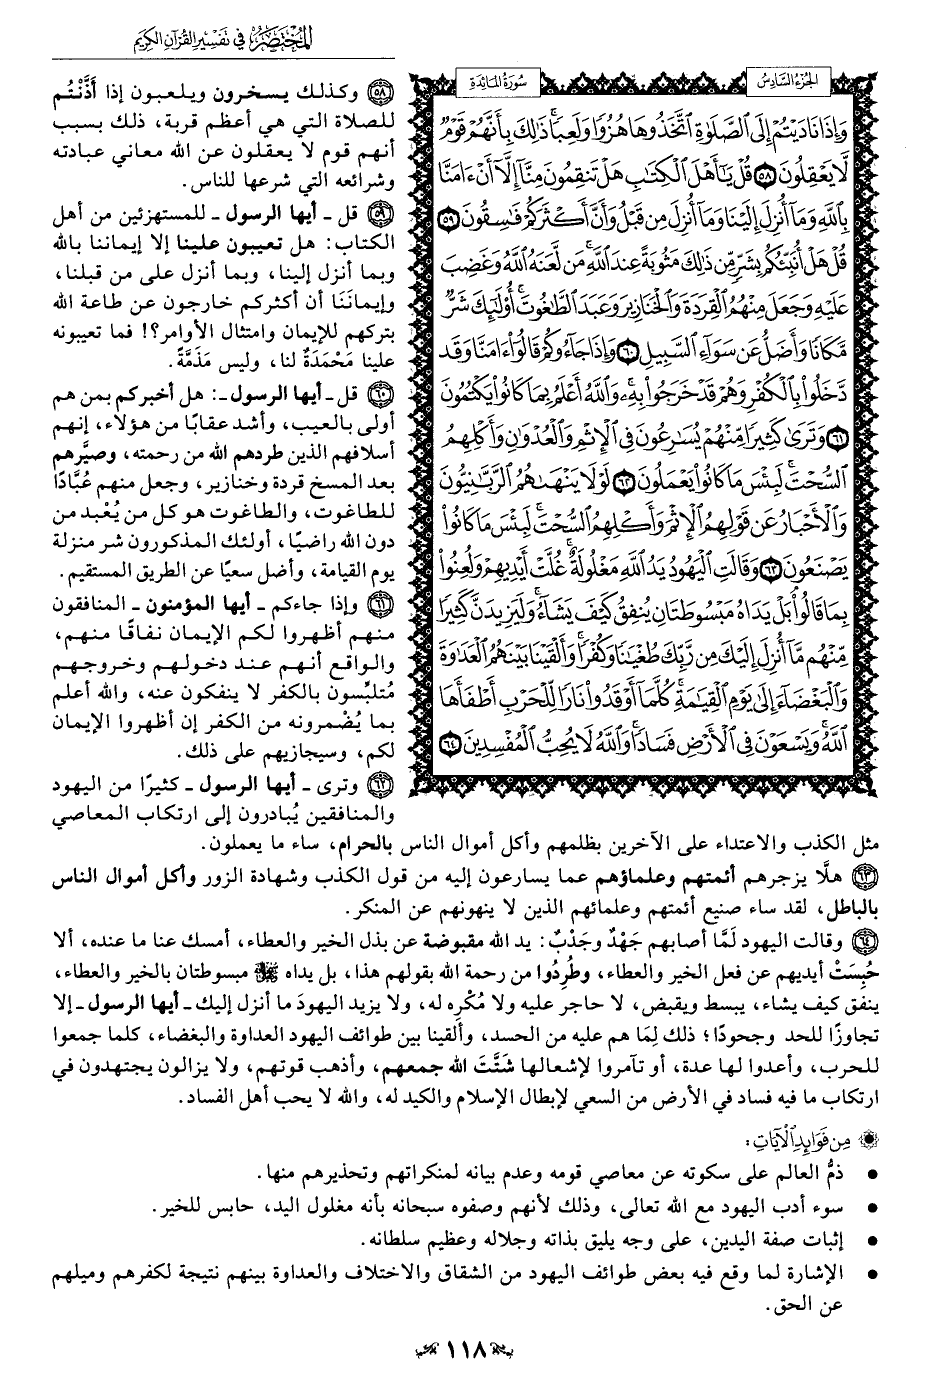 المختصر في تفسير القرآن الكريم
الجزء السادس
سورة المائدة
وَإِذَا نَادَيْتُمْ إِلَى ٱلصَّلَوٰةِ ٱتَّخَذُوهَا هُزُوًا وَلَعِبًا ۚ ذَٰلِكَ بِأَنَّهُمْ قَوْمٌ
لَّا يَعْقِلُونَ ٥٨ قُلْ يَٰٓأَهْلَ ٱلْكِتَٰبِ هَلْ تَنقِمُونَ مِنَّآ إِلَّآ أَنْ ءَامَنَّا
بِٱللَّهِ وَمَآ أُنزِلَ إِلَيْنَا وَمَآ أُنزِلَ مِن قَبْلُ وَأَنَّ أَكْثَرَكُمْ فَٰسِقُونَ ٥٩
قُلْ هَلْ أُنَبِّئُكُم بِشَرٍّ مِّن ذَٰلِكَ مَثُوبَةً عِندَ ٱللَّهِ ۚ مَن لَّعَنَهُ ٱللَّهُ وَغَضِبَ
عَلَيْهِ وَجَعَلَ مِنْهُمُ ٱلْقِرَدَةَ وَٱلْخَنَازِيرَ وَعَبَدَ ٱلطَّٰغُوتَ ۚ أُو۟لَٰٓئِكَ شَرٌّ
مَّكَانًا وَأَضَلُّ عَن سَوَآءِ ٱلسَّبِيلِ ٦٠ وَإِذَا جَآءُوكُمْ قَالُوٓا۟ ءَامَنَّا وَقَد
دَّخَلُوا۟ بِٱلْكُفْرِ وَهُمْ قَدْ خَرَجُوا۟ بِهِۦ ۚ وَٱللَّهُ أَعْلَمُ بِمَا كَانُوا۟ يَكْتُمُونَ
٦١ وَتَرَىٰ كَثِيرًا مِّنْهُمْ يُسَٰرِعُونَ فِى ٱلْإِثْمِ وَٱلْعُدْوَٰنِ وَأَكْلِهِمُ
ٱلسُّحْتَ ۚ لَبِئْسَ مَا كَانُوا۟ يَعْمَلُونَ ٦٢ لَوْلَا يَنْهَىٰهُمُ ٱلرَّبَّٰنِيُّونَ
وَٱلْأَحْبَارُ عَن قَوْلِهِمُ ٱلْإِثْمَ وَأَكْلِهِمُ ٱلسُّحْتَ ۚ لَبِئْسَ مَا كَانُوا۟
يَصْنَعُونَ ٦٣ وَقَالَتِ ٱلْيَهُودُ يَدُ ٱللَّهِ مَغْلُولَةٌ ۚ غُلَّتْ أَيْدِيهِمْ وَلُعِنُوا۟
بِمَا قَالُوا۟ ۘ بَلْ يَدَاهُ مَبْسُوطَتَانِ يُنفِقُ كَيْفَ يَشَآءُ ۚ وَلَيَزِيدَنَّ كَثِيرًا
مِّنْهُم مَّآ أُنزِلَ إِلَيْكَ مِن رَّبِّكَ طُغْيَٰنًا وَكُفْرًا ۚ وَأَلْقَيْنَا بَيْنَهُمُ ٱلْعَدَٰوَةَ
وَٱلْبَغْضَآءَ إِلَىٰ يَوْمِ ٱلْقِيَٰمَةِ ۚ كُلَّمَآ أَوْقَدُوا۟ نَارًا لِّلْحَرْبِ أَطْفَأَهَا
ٱللَّهُ ۚ وَيَسْعَوْنَ فِى ٱلْأَرْضِ فَسَادًا ۚ وَٱللَّهُ لَا يُحِبُّ ٱلْمُفْسِدِينَ ٦٤
٥٨ وكذلك يسخرون ويلعبون إذا أَذَّنْتُم
للصلاة التي هي أعظم قربة، ذلك بسبب
أنهم قوم لا يعقلون عن الله معاني عبادته
وشرائعه التي شرعها للناس.
٥٩ قل ـ أيها الرسول ـ للمستهزئين من أهل
الكتاب: هل تعيبون علينا إلا إيماننا بالله
وبما أنزل إلينا، وبما أنزل على من قبلنا،
وإيمانَنَا أن أكثركم خارجون عن طاعة الله
بتركهم للإيمان وامتثال الأوامر؟! فما تعيبونه
علينا مَحْمَدَةٌ لنا، وليس مَذَمَّةً.
٦٠ قل ـ أيها الرسول ـ: هل أخبركم بمن هم
أولى بالعيب، وأشد عقابًا من هؤلاء، إنهم
أسلافهم الذين طردهم الله من رحمته، وصيَّرهم
بعد المسخ قردة وخنازير، وجعل منهم عُبَّادًا
للطاغوت، والطاغوت هو كل من يُعْبد من
دون الله راضيًا، أولئك المذكورون شر منزلة
يوم القيامة، وأضل سعيًا عن الطريق المستقيم.
٦١ وإذا جاءكم ـ أيها المؤمنون ـ المنافقون
منهم أظهروا لكم الإيمان نفاقًا منهم،
والواقع أنهم عند دخولهم وخروجهم
مُتلبِّسون بالكفر لا ينفكون عنه، والله أعلم
بما يُضْمرونه من الكفر إن أظهروا الإيمان
لكم، وسيجازيهم على ذلك.
٦٢ وترى ـ أيها الرسول ـ كثيرًا من اليهود
والمنافقين يُبادرون إلى ارتكاب المعاصي
مثل الكذب والاعتداء على الآخرين بظلمهم وأكل أموال الناس بالحرام، ساء ما يعملون.
٦٣ هلَّا يزجرهم أئمتهم وعلماؤهم عما يسارعون إليه من قول الكذب وشهادة الزور وأكل أموال الناس
بالباطل، لقد ساء صنيع أئمتهم وعلمائهم الذين لا ينهونهم عن المنكر.
٦٤ وقالت اليهود لَمَّا أصابهم جَهْدٌ وجَدْبٌ: يد الله مقبوضة عن بذل الخير والعطاء، أمسك عنا ما عنده، ألا
حُبِسَتْ أيديهم عن فعل الخير والعطاء، وطُرِدُوا من رحمة الله بقولهم هذا، بل يداه ﷻ مبسوطتان بالخير والعطاء،
ينفق كيف يشاء، يبسط ويقبض، لا حاجر عليه ولا مُكْرِه له، ولا يزيد اليهودَ ما أنزل إليك ـ أيها الرسول ـ إلا
تجاوزًا للحد وجحودًا؛ ذلك لِمَا هم عليه من الحسد، وألقينا بين طوائف اليهود العداوة والبغضاء، كلما جمعوا
للحرب، وأعدوا لها عدة، أو تآمروا لإشعالها شَتَّتَ الله جمعهم، وأذهب قوتهم، ولا يزالون يجتهدون في
ارتكاب ما فيه فساد في الأرض من السعي لإبطال الإسلام والكيد له، والله لا يحب أهل الفساد.
من فوائد الآيات:
• ذمُّ العالم على سكوته عن معاصي قومه وعدم بيانه لمنكراتهم وتحذيرهم منها.
• سوء أدب اليهود مع الله تعالى، وذلك لأنهم وصفوه سبحانه بأنه مغلول اليد، حابس للخير.
• إثبات صفة اليدين، على وجه يليق بذاته وجلاله وعظيم سلطانه.
• الإشارة لما وقع فيه بعض طوائف اليهود من الشقاق والاختلاف والعداوة بينهم نتيجة لكفرهم وميلهم
عن الحق.
١١٨